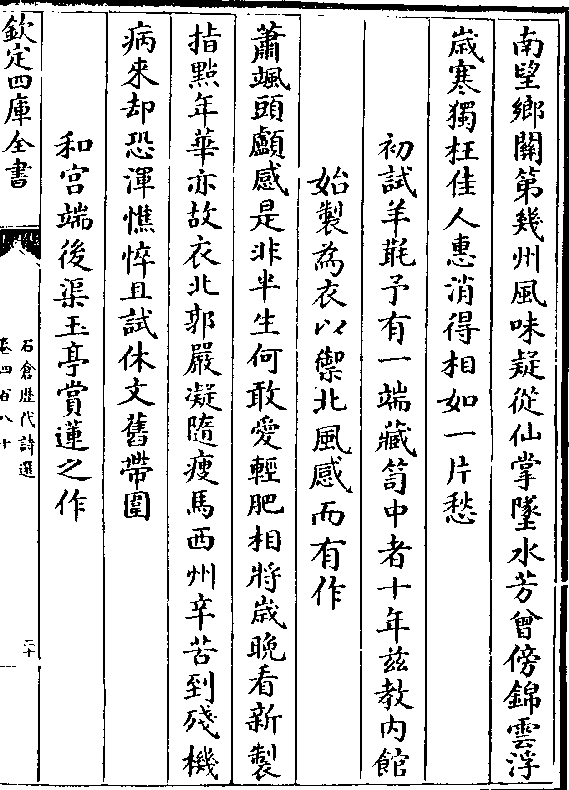 南望鄉關第幾州風味疑從仙掌墜水芳曾傍錦雲浮
歳寒獨枉佳人惠消得相如一片愁
初試羊毼予有一端藏笥中者十年兹教内館
始製為衣以禦北風感而有作
蕭颯頭顱感是非半生何敢愛輕肥相將歳晩看新製
指㸃年華亦故衣北郭嚴凝隨瘦馬西州辛苦到殘機
病來却恐渾憔悴且試休文舊帶圍
和宫端後渠玉亭賞蓮之作
欽定四庫全書
石倉歴代詩選
卷四百八十
二十